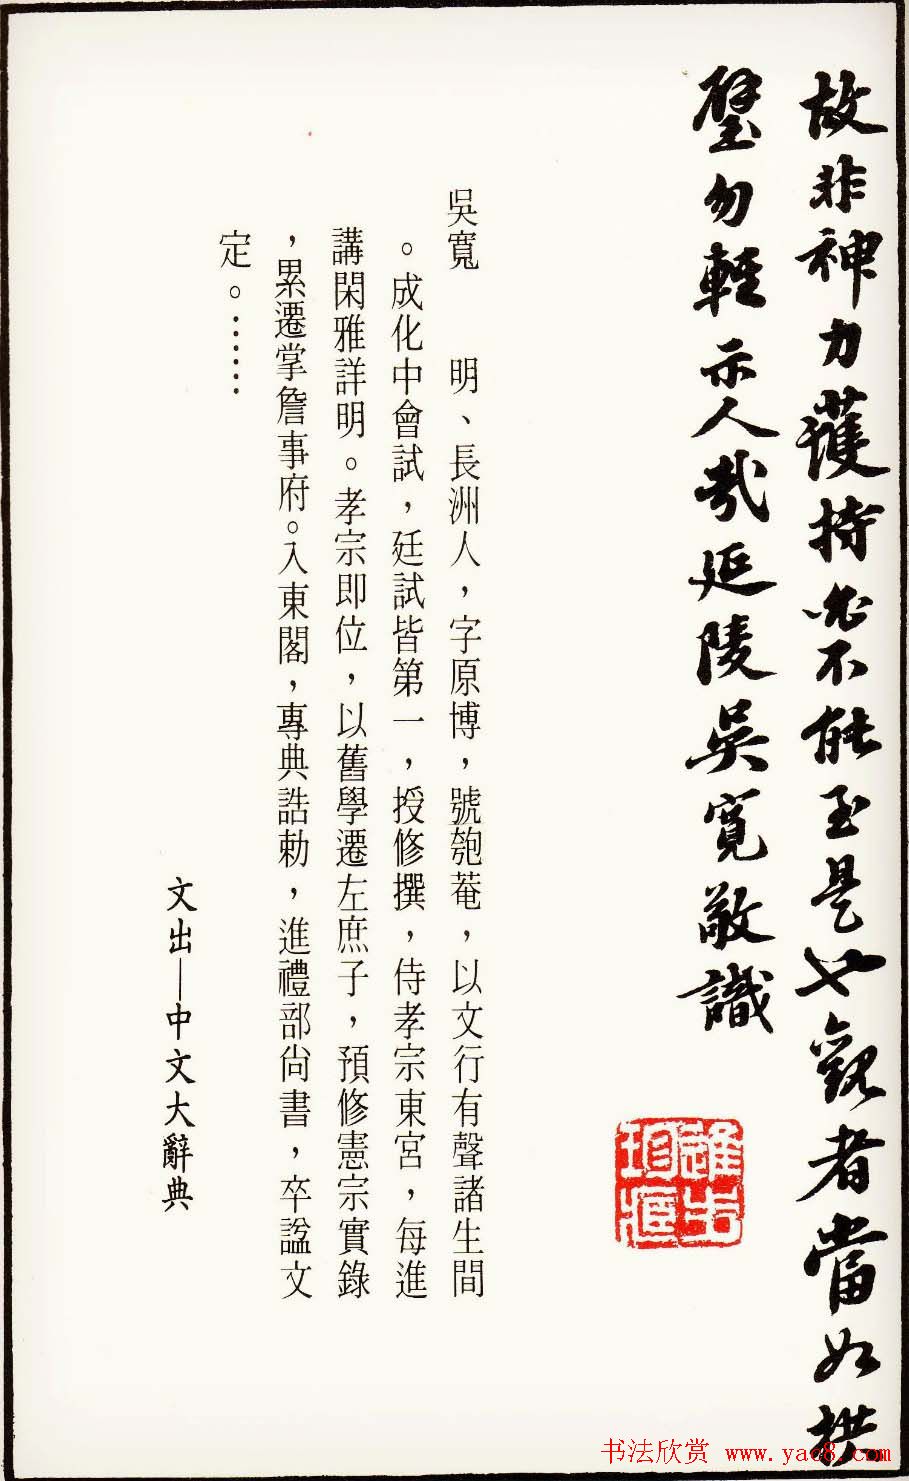 故非神力護持必不能至是也觀者當如拱
璧勿輕示人哉延陵吳寬敬識
吳寬　明、長洲人，字原博，號匏菴，以文行有聲諸生間
。成化中會試，廷試皆第一，授修撰，侍孝宗東宮，每進
講閑雅詳明。孝宗即位，以舊學遷左庶子，預修憲宗實錄
，累遷掌詹事府。入東閣，專典誥勅，進禮部尙書，卒諡文
定。……
文出—中文大辭典
书法欣赏 www.yac8.com